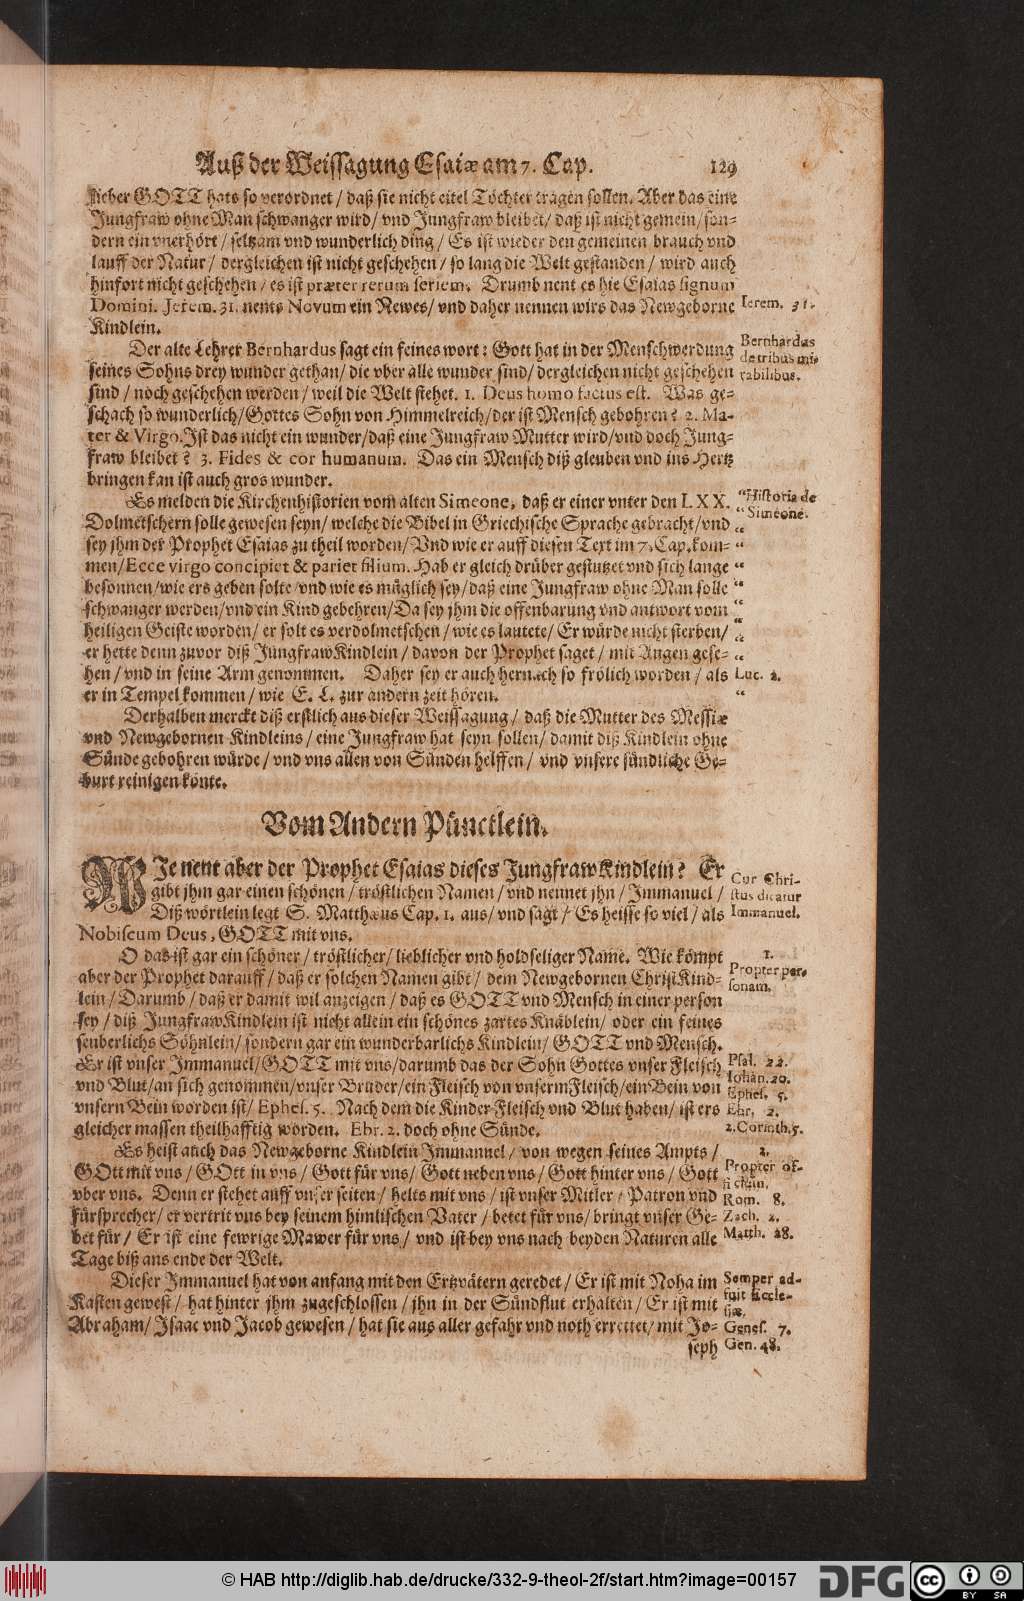 Auß der Weissagung Esaiæ am 7. Cap. 129
lieber GOTT hats so verordnet / daß sie nicht eitel Töchter tragen sollen. Aber das eine
Jungfraw ohne Man schwanger wird / vnd Jungfraw bleibet / daß ist nicht gemein / son-
dern ein vnerhört / seltzam vnd wunderlich ding / Es ist wieder den gemeinen brauch vnd
lauff der Natur / dergleichen ist nicht geschehen / so lang die Welt gestanden / wird auch
hinfort nicht geschehen / es ist præter rerum seriem. Drumb nent es hie Esaias signum
Domini. Jerem. 31. nents Novum ein Newes / vnd daher nennen wirs das Newgeborne
Ierem. 31.
Kindlein.
Der alte Lehrer Bernhardus sagt ein feines wort: Gott hat in der Menschwerdung
Bernhardus
seines Sohns drey wunder gethan / die vber alle wunder sind / dergleichen nicht geschehen
de tribus mi-
rabilibus.
sind / noch geschehen werden / weil die Welt stehet. 1. Deus homo factus est. Was ge-
schach so wunderlich / Gottes Sohn von Himmelreich / der ist Mensch gebohren? 2. Ma-
ter & Virgo. Ist das nicht ein wunder / daß eine Jungfraw Mutter wird / vnd doch Jung-
fraw bleibet? 3. Fides & cor humanum. Das ein Mensch diß gleuben vnd ins Hertz
bringen kan ist auch gros wunder.
Es melden die Kirchenhistorien vom alten Simeone, daß er einer vnter den LXX.
“Historia de
Dolmetschern solle gewesen seyn / welche die Bibel in Griechische Sprache gebracht / vnd
“ Simeone.
sey jhm der Prophet Esaias zu theil worden / Vnd wie er auff diesen Text im 7. Cap. kom-
men / Ecce virgo concipiet & pariet filium. Hab er gleich drüber gestutzet vnd sich lange
besonnen / wie ers geben solte / vnd wie es müglich sey / daß eine Jungfraw ohne Man solle
schwanger werden / vnd ein Kind gebehren / Da sey jhm die offenbarung vnd antwort vom
heiligen Geiste worden / er solt es verdolmetschen / wie es lautete / Er würde nicht sterben /
er hette denn zuvor diß JungfrawKindlein / davon der Prophet saget / mit Augen gese-
hen / vnd in seine Arm genommen. Daher sey er auch hernach so frölich worden / als
Luc. 2.
er in Tempel kommen / wie E. L. zur andern zeit hören.
Derhalben merckt diß erstlich aus dieser Weissagung / daß die Mutter des Messiæ
vnd Newgebornen Kindleins / eine Jungfraw hat seyn sollen / damit diß Kindlein ohne
Sünde gebohren würde / vnd vns allen von Sünden helffen / vnd vnsere sündliche Ge-
burt reinigen könte.
Vom Andern Pünctlein.
WIe nent aber der Prophet Esaias dieses JungfrawKindlein? Er
gibt jhm gar einen schönen / tröstlichen Namen / vnd nennet jhn / Immanuel /
Cur Chri-
stus dicatur
Immanuel.
Diß wörtlein legt S. Matthæus Cap. 1. aus / vnd sagt / Es heisse so viel / als
Nobiscum Deus, GOTT mit vns.
O das ist gar ein schöner / tröstlicher / lieblicher vnd holdseliger Name. Wie kömpt
1.
aber der Prophet darauff / daß er solchen Namen gibt / dem Newgebornen ChristKind-
Propter per-
sonam.
lein / Darumb / daß er damit wil anzeigen / daß es GOTT vnd Mensch in einer person
sey / diß JungfrawKindlein ist nicht allein ein schönes zartes Knäblein / oder ein feines
seuberlichs Söhnlein / sondern gar ein wunderbarlichs Kindlein / GOTT vnd Mensch.
Er ist vnser Immanuel / GOTT mit vns / darumb das der Sohn Gottes vnser Fleisch
Psal. 22.
vnd Blut / an sich genommen / vnser Bruder / ein Fleisch von vnserm Fleisch / ein Bein von
Iohan. 20.
Ephes. 5.
vnsern Bein worden ist / Ephes. 5. Nach dem die Kinder Fleisch vnd Blut haben / ist ers
Ebr. 2.
gleicher massen theilhafftig worden. Ebr. 2. doch ohne Sünde.
2. Corinth. 5.
Es heist auch das Newgeborne Kindlein Immanuel / von wegen seines Ampts /
2.
GOtt mit vns / GOtt in vns / Gott für vns / Gott neben vns / Gott hinter vns / Gott
Propter of-
ficium.
vber vns. Denn er stehet auff vnser seiten / helts mit vns / ist vnser Mitler / Patron vnd
Rom. 8.
fürsprecher / er vertrit vns bey seinem himlischen Vater / betet für vns / bringt vnser Ge-
Zach. 2.
bet für / Er ist eine fewrige Mawer für vns / vnd ist bey vns nach beyden Naturen alle
Matth. 28.
Tage biß ans ende der Welt.
Dieser Immanuel hat von anfang mit den Ertzvätern geredet / Er ist mit Noha im
Semper ad-
fuit Eccle-
siæ.
Kasten gewest / hat hinter jhm zugeschlossen / jhn in der Sündflut erhalten / Er ist mit
Abraham / Isaac vnd Jacob gewesen / hat sie aus aller gefahr vnd noth errettet / mit Jo-
Genes. 7.
seph
Gen. 48.
© HAB http://diglib.hab.de/drucke/332-9-theol-2f/start.htm?image=00157
DFG
cc BY SA